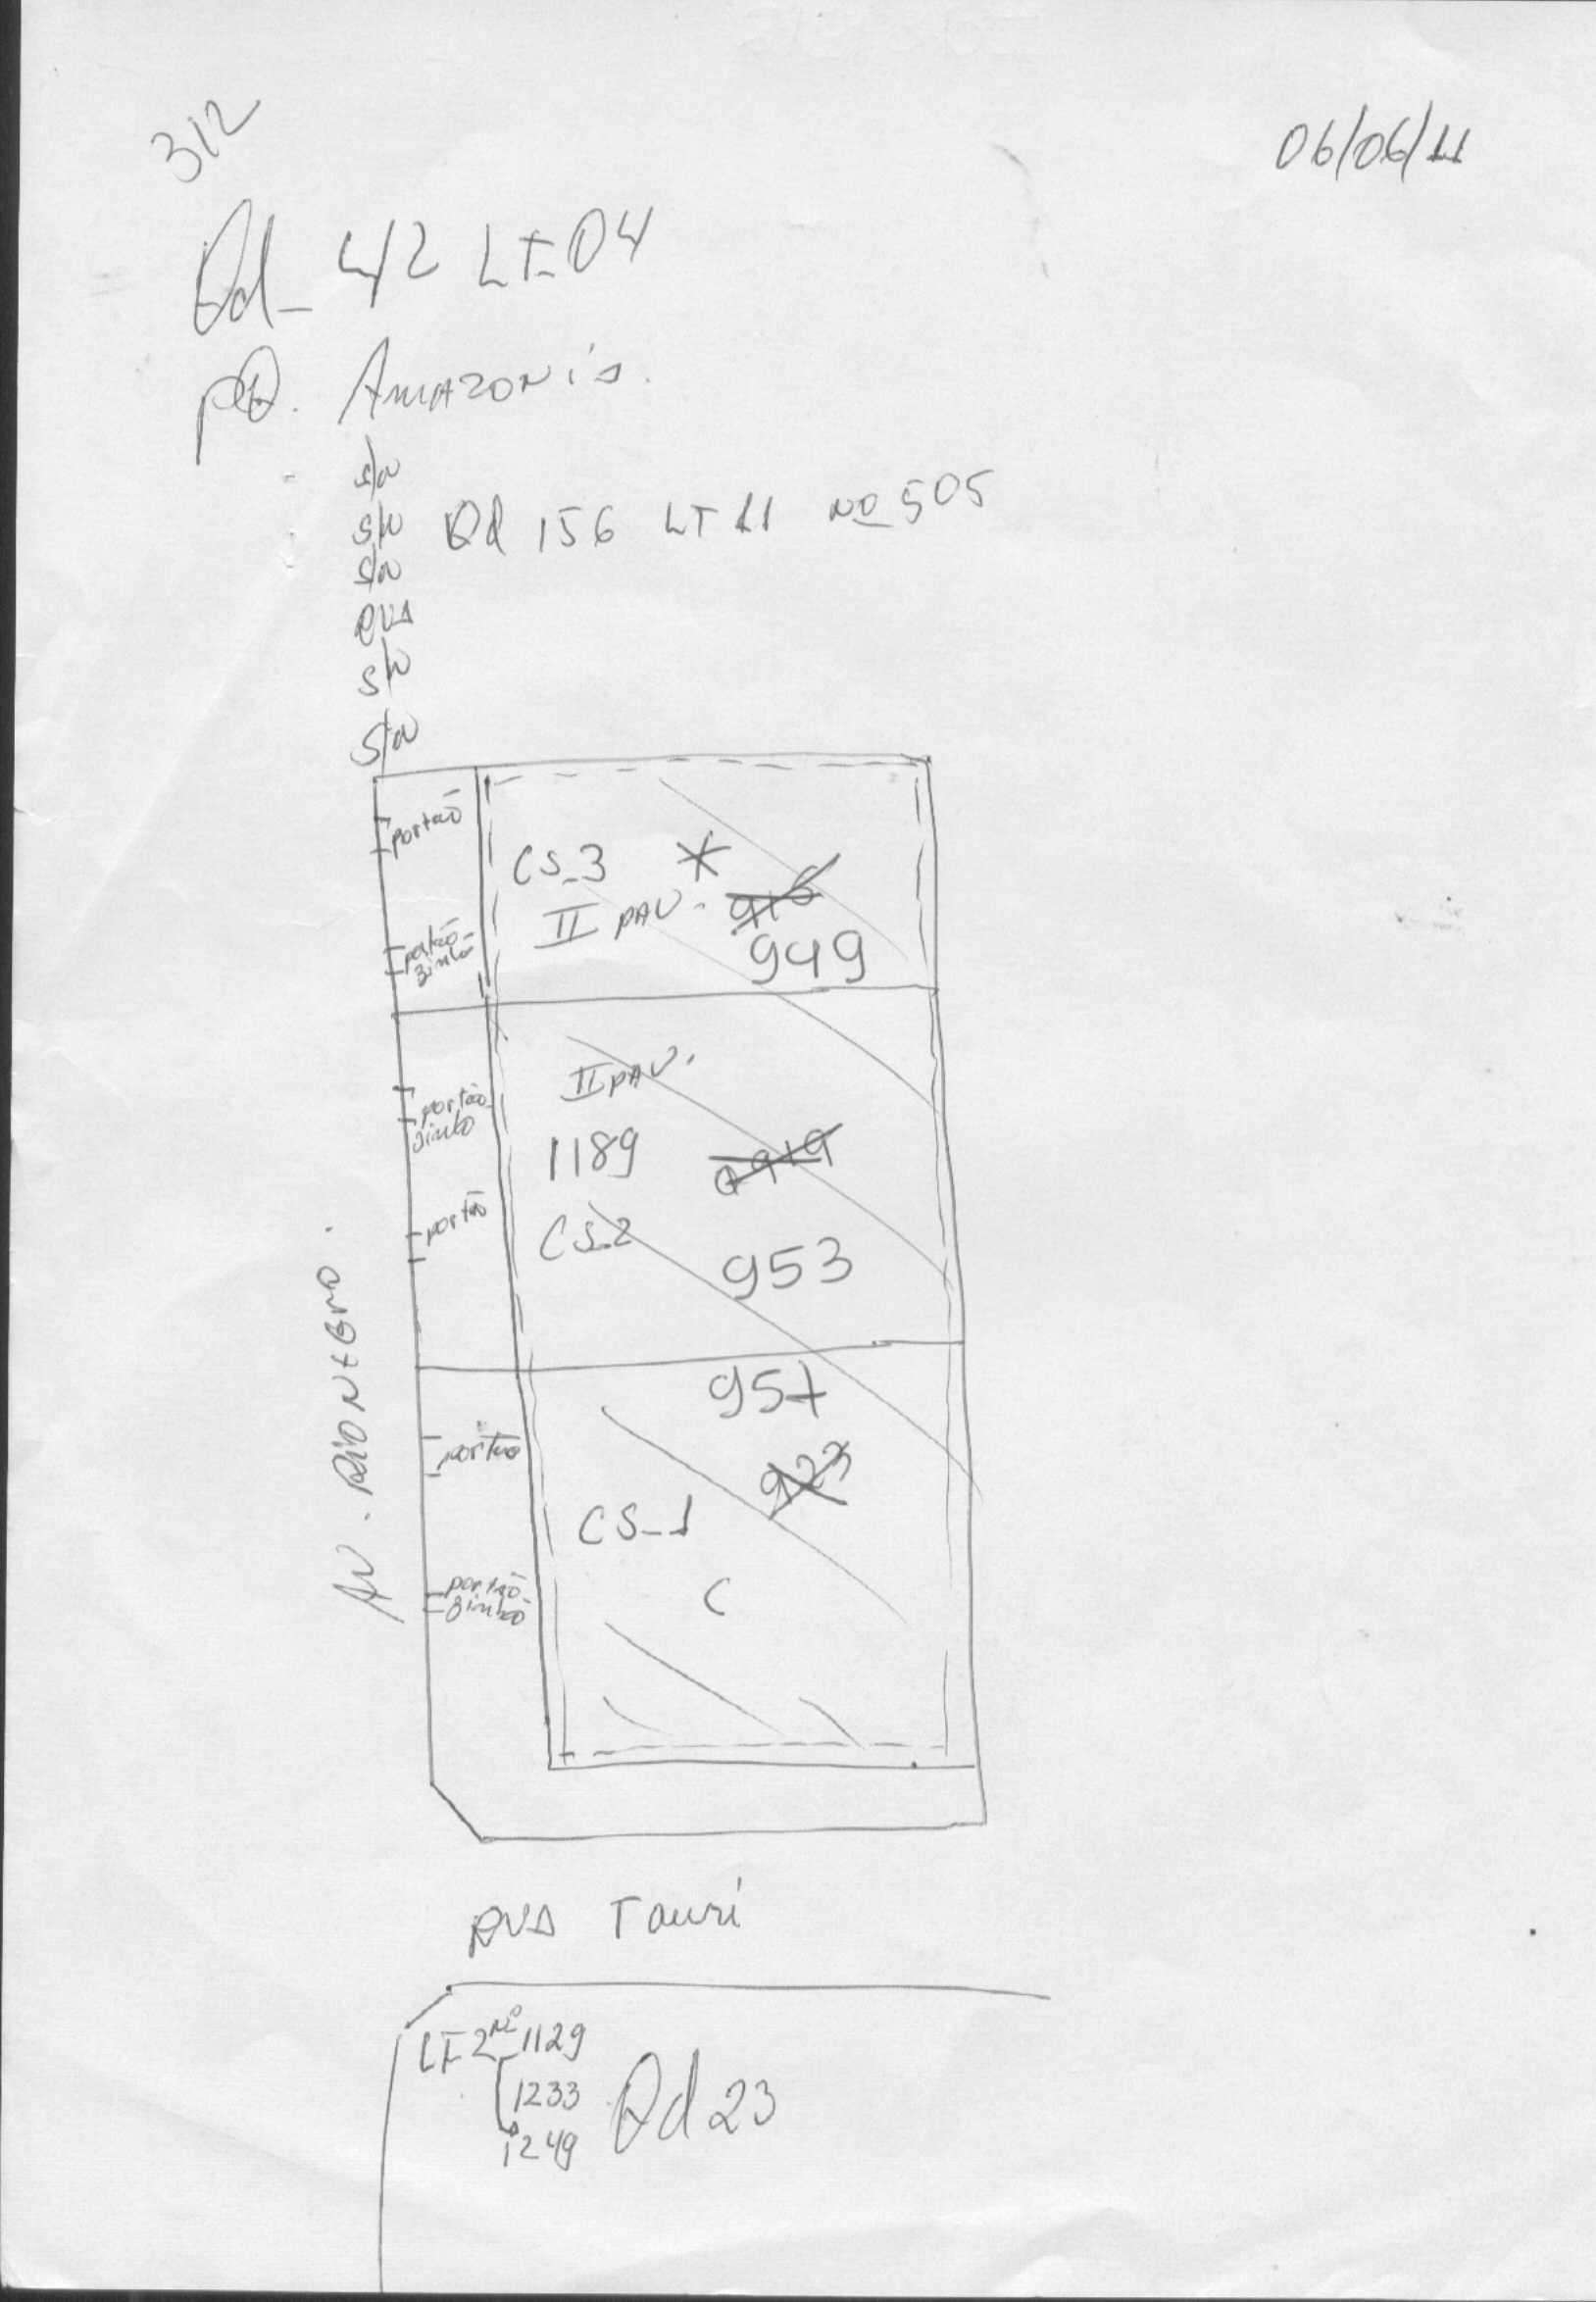 312
06/06/11
Qd_ 42 LT_04
PQ. AMAZONia.
S/N
S/N Qd 156 LT 11 Nº 505
S/N
RUA
S/N
S/N
portão
CS_3 *
II PAV. 916
portão
zinho
949
II PAV.
portão
zinho
1189 0919
portão
CS_2
953
AV. RIO NEGRO.
957
portão
923
CS_1
portão
zinho
C
RUA Tauri
LT_2 Nº 1129
1233
Qd 23
1249